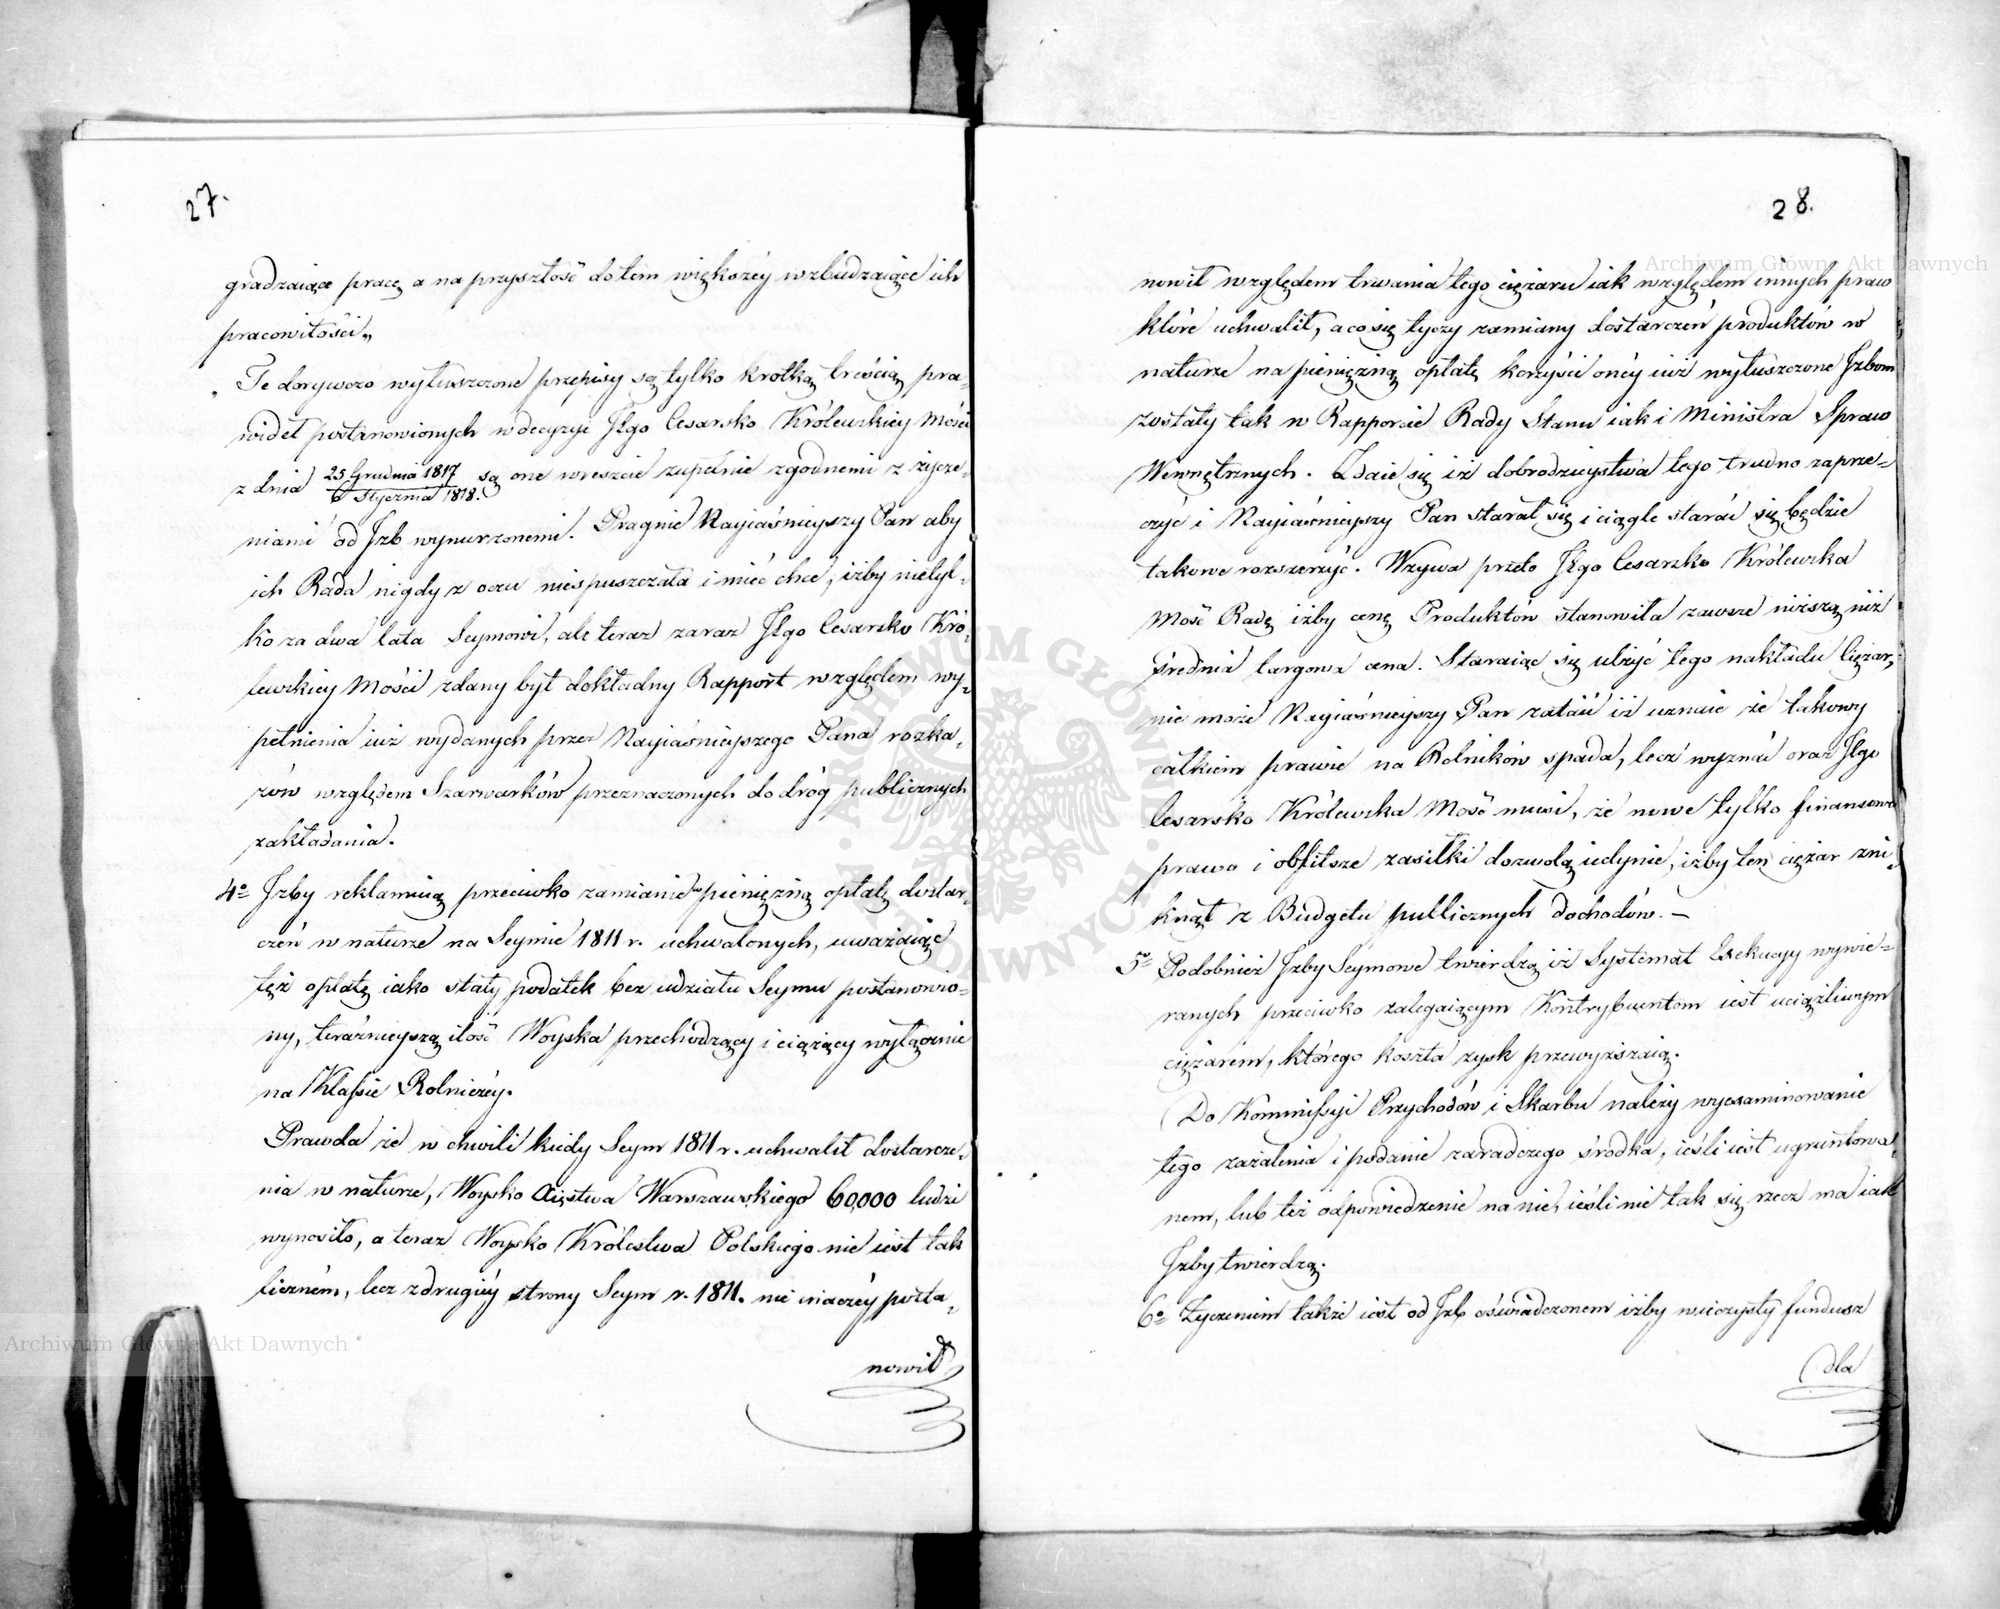 27.
gradzaiące pracę a na przyszłość do tém większéy wzbudzaiące ich
pracowitości„
„ Te dorywczo wyłuszczone przepisy są tylko krótką treścią pra-
wideł postanowionych w decyzyi JEgo Cesarsko Królewskiey Mości
z dnia 25 Grudnia 1817 / 6 Stycznia 1818. są one wreszcie zupełnie zgodnemi z życze-
niami od Jzb wynurzonemi. Pragnie Nayiaśnieyszy Pan aby
ich Rada nigdy z oczu niespuszczała i mieć chce, iżby nietyl-
ko za dwa lata Seymowi, ale teraz zaraz JEgo Cesarsko Kró-
lewskiey Mości zdany był dokładny Rapport względem wy-
pełnienia iuż wydanych przez Nayiaśnieyszego Pana rozka-
zów względem Szarwarków przeznaczonych do dróg publicznych
zakładania.
4o Jzby reklamuią przeciwko zamianie na pieniężną opłatę dostar-
czeń w naturze na Seymie 1811 r. uchwalonych, uważaiąc
tęż opłatę iako stały podatek bez udziału Seymu postanowio-
ny, teraźnieyszą ilość Woyska przechodzący i ciążący wyłącznie
na Klassie Rolniczéy.
Prawda że w chwili kiedy Seym 1811 r. uchwalił dostarcze-
nia w naturze, Woysko Xięstwa Warszawskiego 60,000 ludzi
wynosiło, a teraz Woysko Królestwa Polskiego nie iest tak
liczném, lecz z drugiéy strony Seym r. 1811. nie inaczéy posta-
nowił
28.
nowił względem trwania tego ciężaru iak względem innych praw
które uchwalił, a co się tyczy zamiany dostarczeń produktów w
naturze na pieniężną opłatę korzyści onéy iuż wyłuszczone Jzbom
zostały tak w Rapporcie Rady Stanu iak i Ministra Spraw
Wewnętrznych. Zdaie się iż dobrodzieystwa tego trudno zaprze-
czyć i Nayiaśnieyszy Pan starał się i ciągle starać się będzie
takowe rozszerzyć. Wzywa przeto JEgo Cesarsko Królewska
Mość Radę iżby cenę Produktów stanowiła zawsze niższą niż
średnia targowa cena. Staraiąc się ulżyć tego nakładu Ciężar,
nie może Nayiaśnieyszy Pan zataić iż uznaie że takowy
całkiem prawie na Rolników spada, lecz wyznać oraz JEgo
Cesarsko Królewska Mość musi, że nowe tylko finansowe
prawo i obfitsze zasiłki dozwolą iedynie, iżby ten ciężar zni-
knął z Budgetu publicznych dochodów. —
5o Podobnież Jzby Seymowe twierdzą iż Systemat Exekucyy wywie-
ranych przeciwko zalegaiącym Kontrybuentom iest uciążliwym
ciężarem, którego koszta zysk przewyższaią.
Do Kommissyi Przychodów i Skarbu należy wyexaminowanie
tego zażalenia i podanie zaradczego środka, ieśli iest ugruntowa-
nem, lub też odpowiedzenie na nie, ieśli nie tak się rzecz ma iak
Jzby twierdzą.
6o Życzeniem także iest od Jzb oświadczonem iżby wieczysty fundusz
dla
Archiwum Główne Akt Dawnych
Archiwum Główne Akt Dawnych
ARCHIWUM GŁÓWNE AKT DAWNYCH